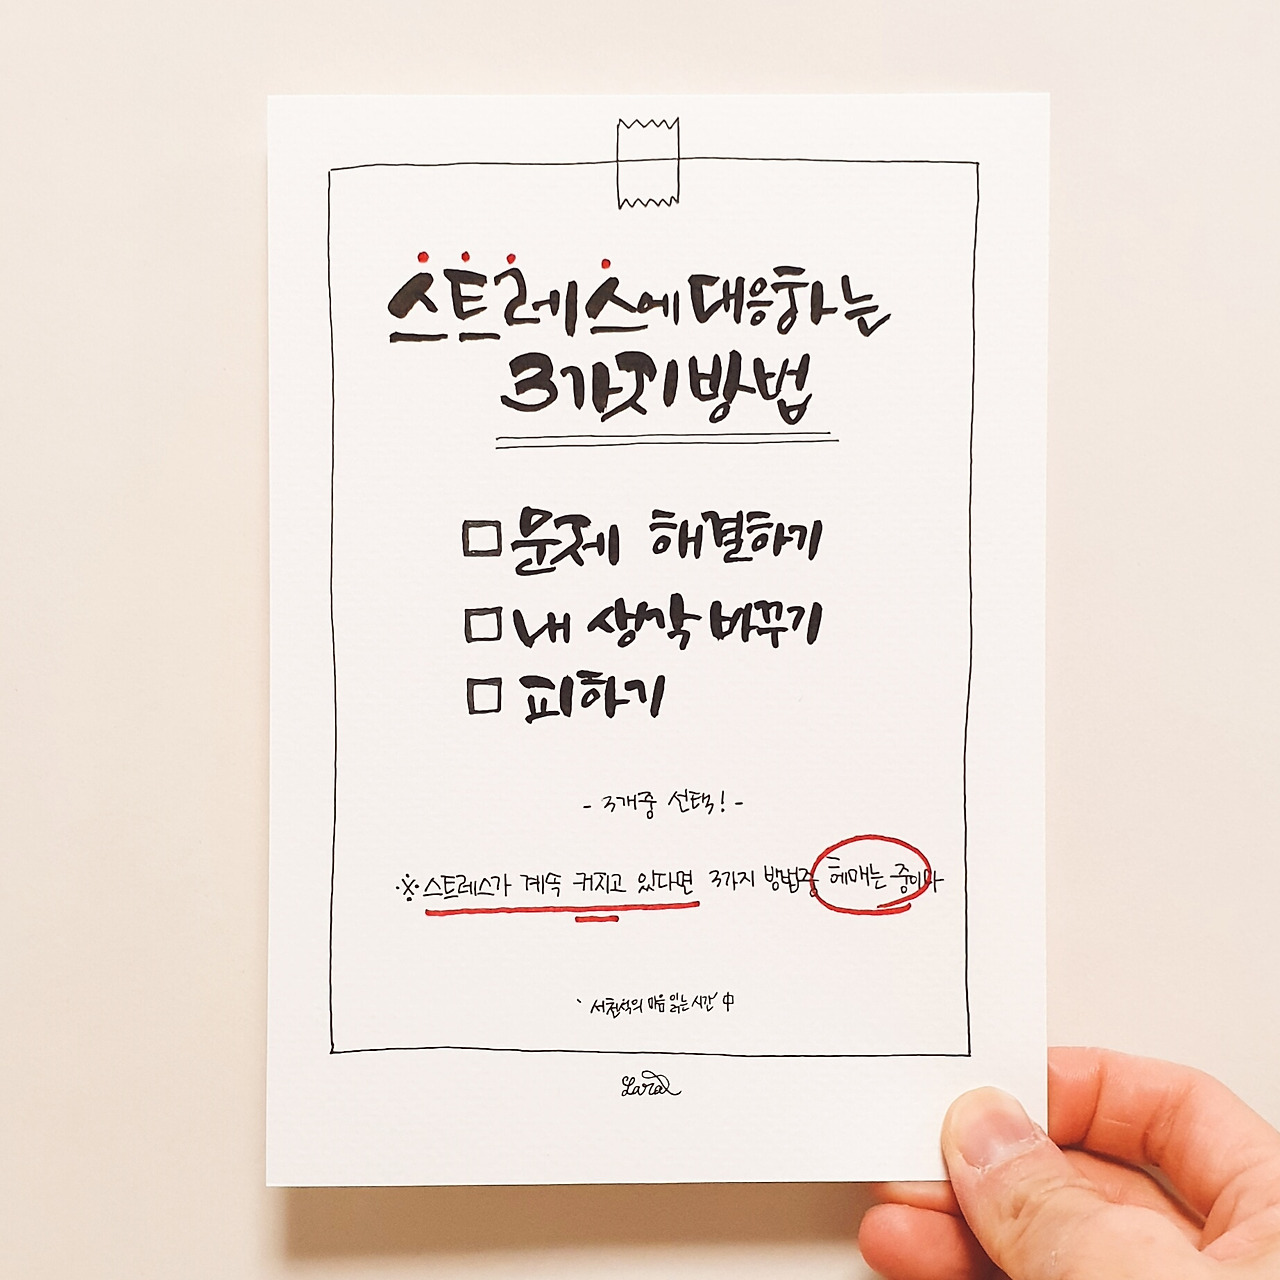 스트레스에 대응하는
3가지 방법
□ 문제 해결하기
□ 내 생각 바꾸기
□ 피하기
- 3개중 선택! -
※ 스트레스가 계속 커지고 있다면 3가지 방법중 헤매는 중이다
'서천석의 마음 읽는 시간' 中
Lara